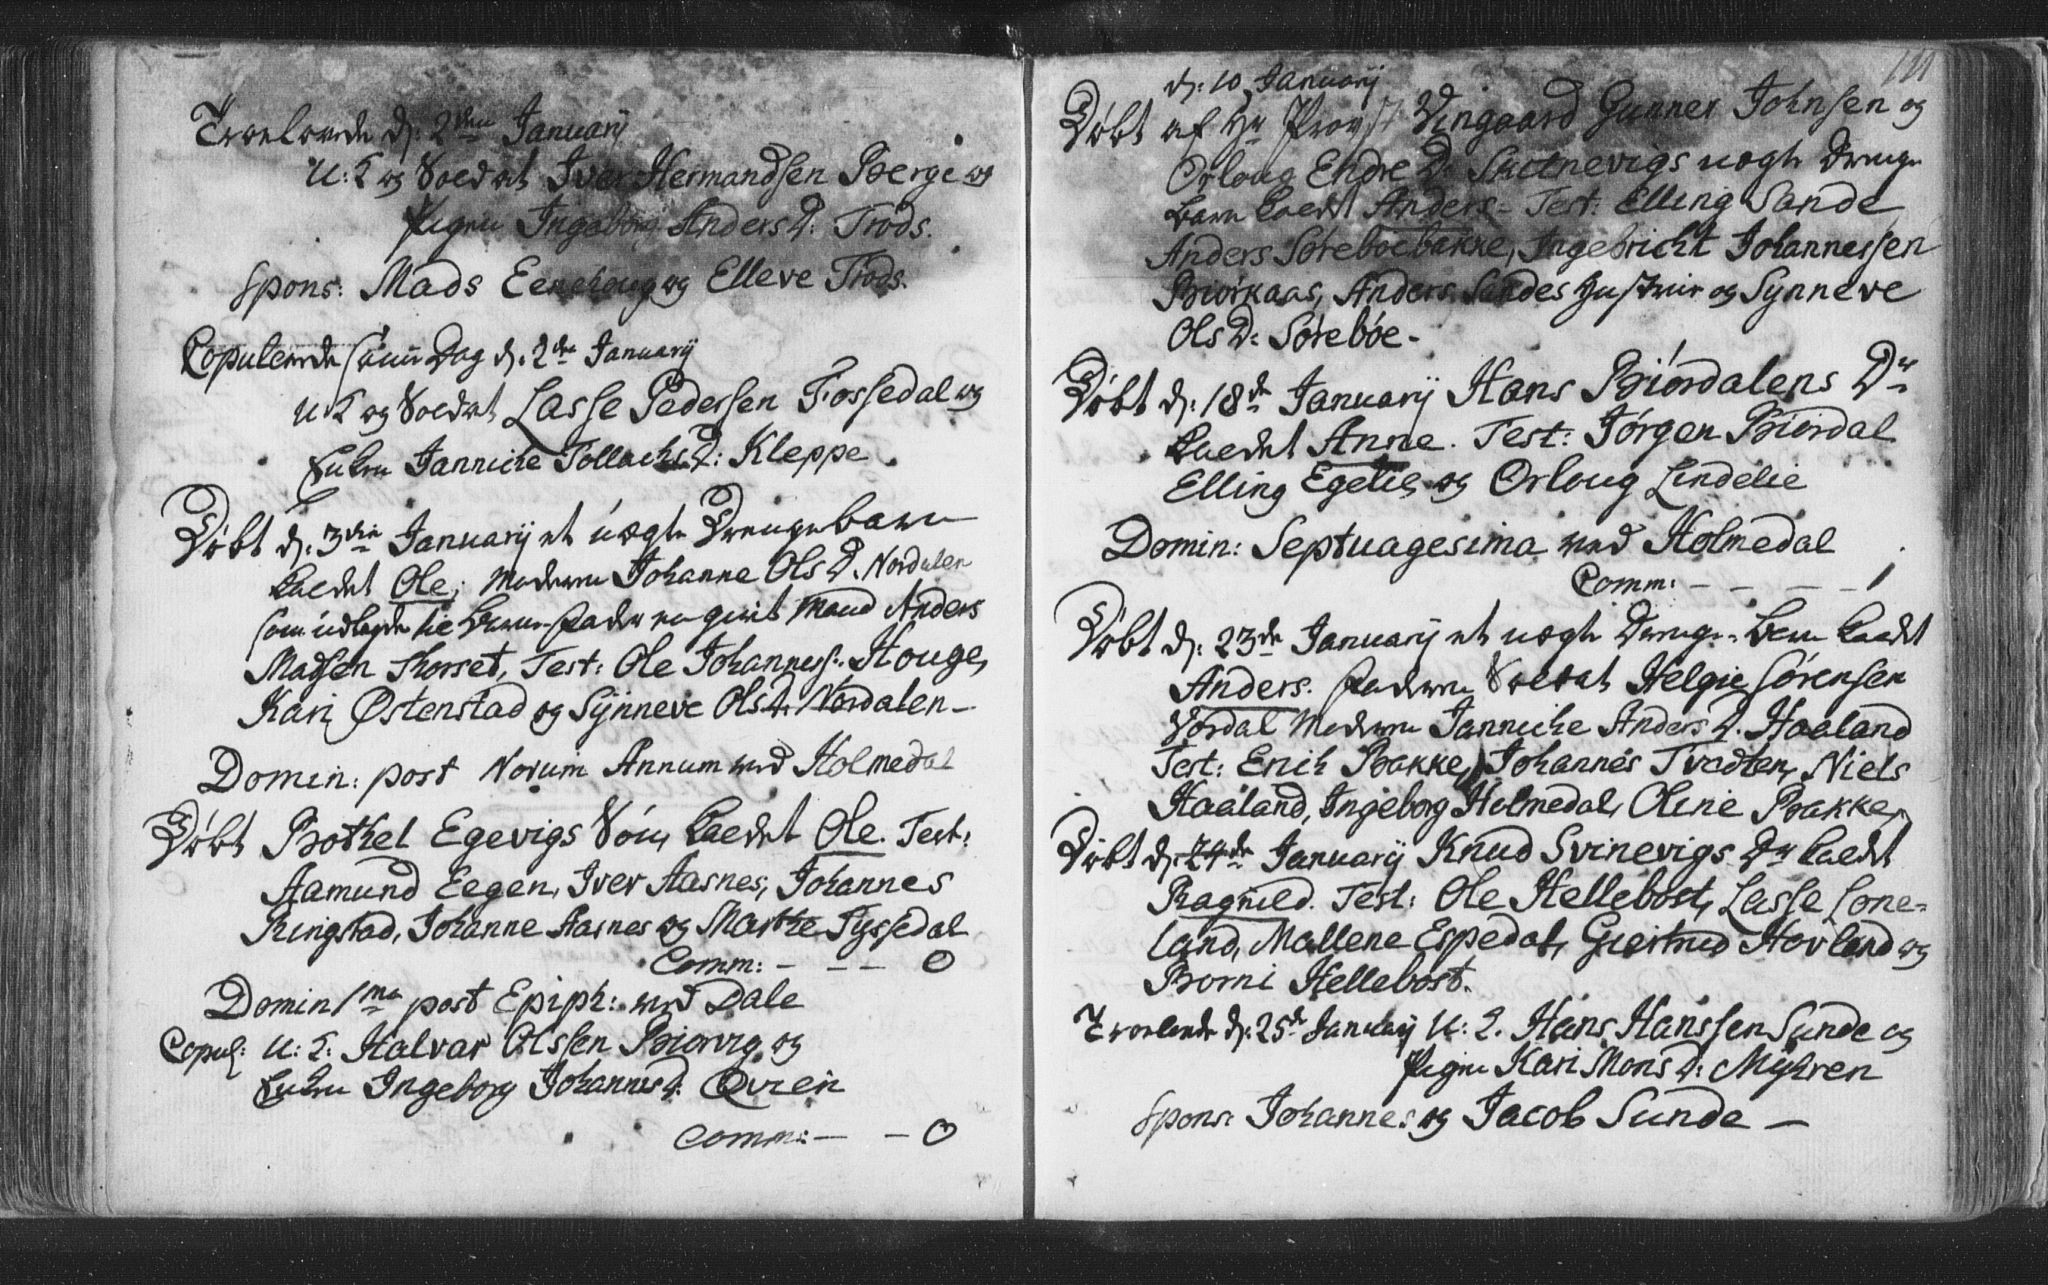 Troelovede d: 2den Januarij
U: K og Soldat Iver Hermandsen Berge og
Pigen Ingeborg Anders D: Trods.
Spons: Mads Eenehoug og Elleve Trods.
Copulerede samme Dag d: 2den Januarij
U: K og Soldat Lasse Pedersen Fossedal og
Enken Jannicke Tollachs D: Kleppe
Døbt d: 3die Januarij et uægte Drengebarn
kaldet Ole; Moderen Johanne Ols D. Nordalen
som udlagde til Barne-Fader en givt Mand Anders
Madsen Thorset, Test: Ole Johanness: Houge,
Kari Østenstad og Synneve Ols D: Nordalen –
Domin: post Novum Annum ved Holmedal
Døbt Bothel Egevigs Søn, kaldet Ole. Test:
Aamund Eegen, Iver Aasnes, Johannes
Ringstad, Johanne Aasnes og Marthe Tyssedal
Comm: – – – 0
Domin 1ma post Epiph: ved Dale
Copul: U: K: Halvar Olssen Biorvig og
Enken Ingeborg Johannes D: Qvien
Comm: – – 0
111
d: 10 Januarij
Døbt af Hr Provst Vingaard Gunner Johnsen og
Orloug Endre D: Skitnevigs uægte Drenge
Barn kaldet Anders – Test: Elling Sande
Anders Sørebøebakke, Ingebricht Johannessen
Biørkaas, Anders Sandes Hustrue og Synneve
Ols D: Sørebøe –
Døbt d: 18de Januarij Hans Biørdalens Dr
kaldet Anne. Test: Jørgen Biørdal
Elling Egelie og Orloug Lindelie
Domin: Septuagesima ved Holmedal
Comm: – – – – 1
Døbt d: 23de Januarij et uægte Drenge-Barn kaldet
Anders. Faderen Soldat Helgie Sørensen
Vordal Moderen Jannicke Anders D. Haaland
Test: Erich Bakke, Johannes Tvedten, Niels
Haaland, Ingeborg Holmedal, Oline Bakke,
Døbt d: 24de Januarij Knud Svinevigs Dr kaldet
Ragnild. Test: Ole Hellebost, Lasse Lone-
land, Mallene Espedal, Giertrud Hovland og
Borni Hellebost.
Troelovede d: 25de Januarij U: K. Hans Hanssen Sunde og
Pigen Kari Mons D: Myhren
Spons: Johannes og Jacob Sunde –